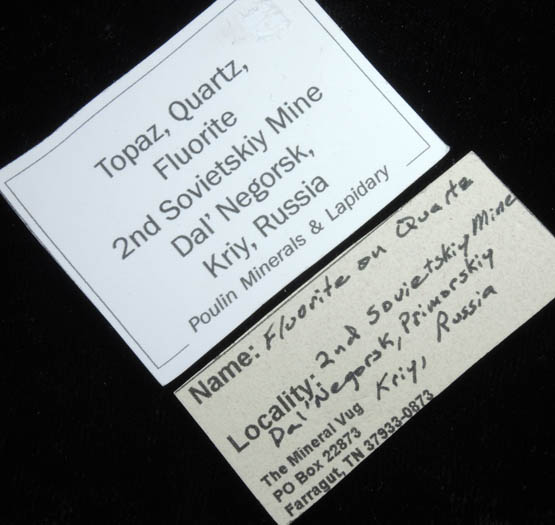 Topaz, Quartz,
Fluorite
2nd Sovietskiy Mine
Dal' Negorsk,
Kriy, Russia
Poulin Minerals & Lapidary
Name: Fluorite on Quartz
Locality: 2nd Sovietskiy Mine
Dal' Negorsk, Primorskiy
Kriy, Russia
The Mineral Vug
PO Box 22873
Farragut, TN 37933-0873